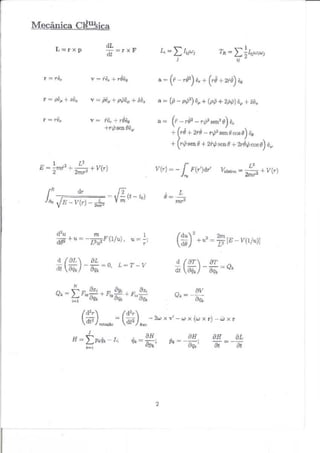 Mecânica Clássica
L = r x p    dL/dt = r x F    L_i = ∑_j I_ij ω_j    T_R = ∑_ij 1/2 I_ij ω_i ω_j
r = rê_r    v = ṙê_r + rθ̇ê_θ    a = (r̈ − rθ̇²) ê_r + (rθ̈ + 2ṙθ̇) ê_θ
r = ρê_ρ + zê_z    v = ρ̇ê_ρ + ρφ̇ê_φ + żê_z    a = (ρ̈ − ρφ̇²) ê_ρ + (ρφ̈ + 2ρ̇φ̇) ê_φ + z̈ê_z
r = rê_r    v = ṙê_r + rθ̇ê_θ    a = (r̈ − rθ̇² − rφ̇² sen² θ) ê_r
+rφ̇ sen θê_φ    + (rθ̈ + 2ṙθ̇ − rφ̇² sen θ cos θ) ê_θ
+ (rφ̈ sen θ + 2ṙφ̇ sen θ + 2rθ̇φ̇ cos θ) ê_φ
E = 1/2 mṙ² + L²/2mr² + V(r)    V(r) = − ∫_{r_0}^{r} F(r')dr'    V_efetivo = L²/2mr² + V(r)
∫_{R_0}^{R} dr / √(E − V(r) − L²/2mr²) = √(2/m) (t − t_0)    θ̇ = L/mr²
d²u/dθ² + u = − m/L²u² F(1/u), u = 1/r;    (du/dθ)² + u² = 2m/L² [E − V(1/u)]
d/dt (∂L/∂q̇_k) − ∂L/∂q_k = 0, L = T − V    d/dt (∂T/∂q̇_k) − ∂T/∂q_k = Q_k
Q_k = ∑_{i=1}^{N} F_ix ∂x_i/∂q_k + F_iy ∂y_i/∂q_k + F_iz ∂z_i/∂q_k    Q_k = − ∂V/∂q_k
(d²r/dt²)_rotação = (d²r/dt²)_fixo − 2ω x v' − ω x (ω x r) − ω̇ x r
H = ∑_{k=1}^{f} p_k q̇_k − L;    q̇_k = ∂H/∂p_k;    ṗ_k = − ∂H/∂q_k;    ∂H/∂t = − ∂L/∂t
2